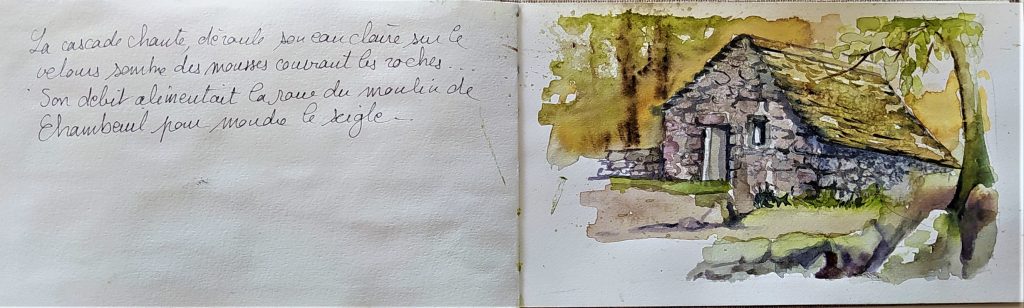 La cascade chante, déroule son eau claire sur le
velours sombre des mousses couvrant les roches...
Son débit alimentait la roue du moulin de
Chambeuil pour moudre le seigle...